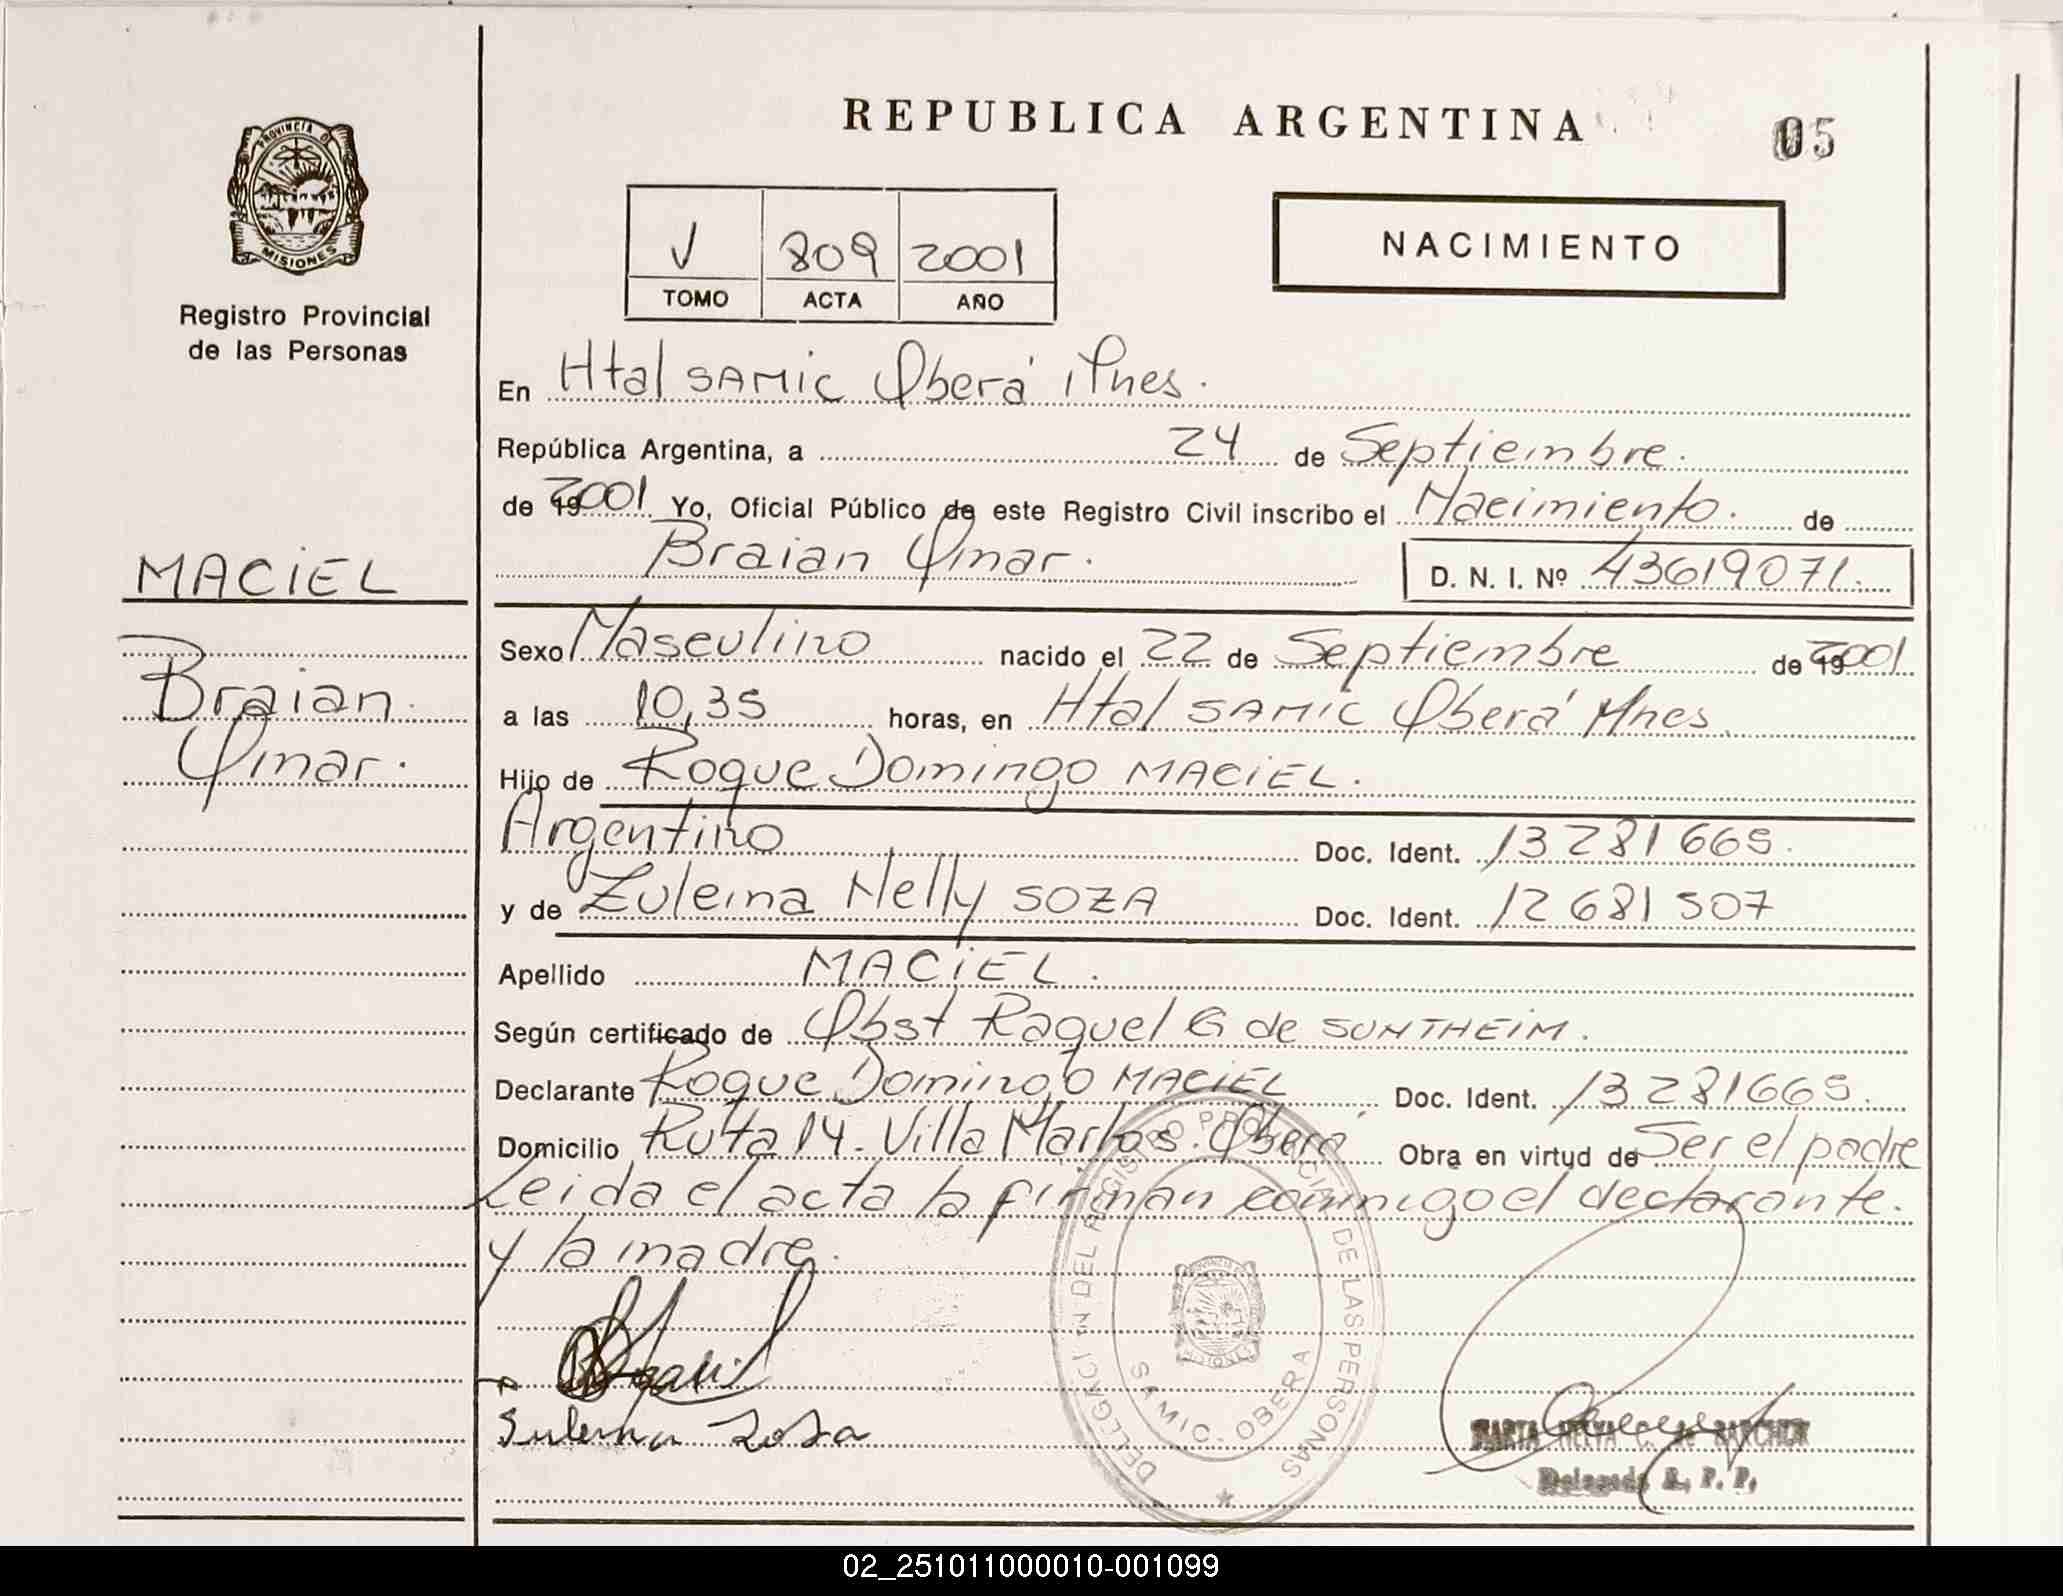 REPUBLICA ARGENTINA
05
PROVINCIA DE
MISIONES
Registro Provincial
de las Personas
V 809 2001
TOMO ACTA AÑO
NACIMIENTO
En Htal SAMIC Oberá Mnes.
República Argentina, a 24 de Septiembre.
de 2001 Yo, Oficial Público de este Registro Civil inscribo el Nacimiento. de
Braian Omar. D. N. I. Nº 43619071.
MACIEL
Braian
Omar.
Sexo Masculino nacido el 22 de Septiembre de 2001
a las 10,35 horas, en Htal SAMIC Oberá Mnes.
Hijo de Roque Domingo MACIEL.
Argentino Doc. Ident. 13281665.
y de Zulema Nelly SOZA Doc. Ident. 12681507
Apellido MACIEL.
Según certificado de Obst Raquel G de SUNTHEIM.
Declarante Roque Domingo MACIEL Doc. Ident. 13281665.
Domicilio Ruta 14. Villa Martos. Oberá Obra en virtud de Ser el padre
Leida el acta la firman conmigo el declarante.
y la madre.
DELEGACION DEL REGISTRO PROVINCIAL DE LAS PERSONAS
SAMIC - OBERA
MISIONES
Sulema Soza
MARTA
Delegada R. P. P.
02_251011000010-001099